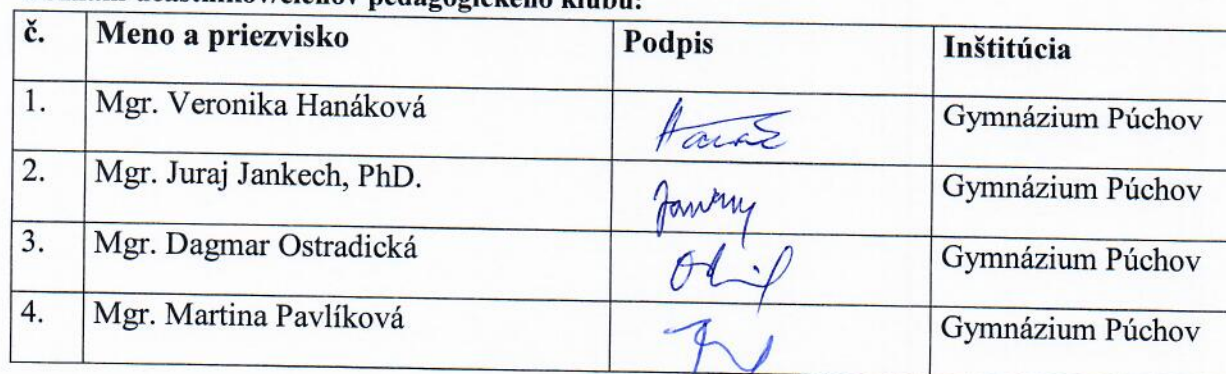 pedagogického klubu:
č. Meno a priezvisko Podpis Inštitúcia
1. Mgr. Veronika Hanáková Gymnázium Púchov
2. Mgr. Juraj Jankech, PhD. Gymnázium Púchov
3. Mgr. Dagmar Ostradická Gymnázium Púchov
4. Mgr. Martina Pavlíková Gymnázium Púchov